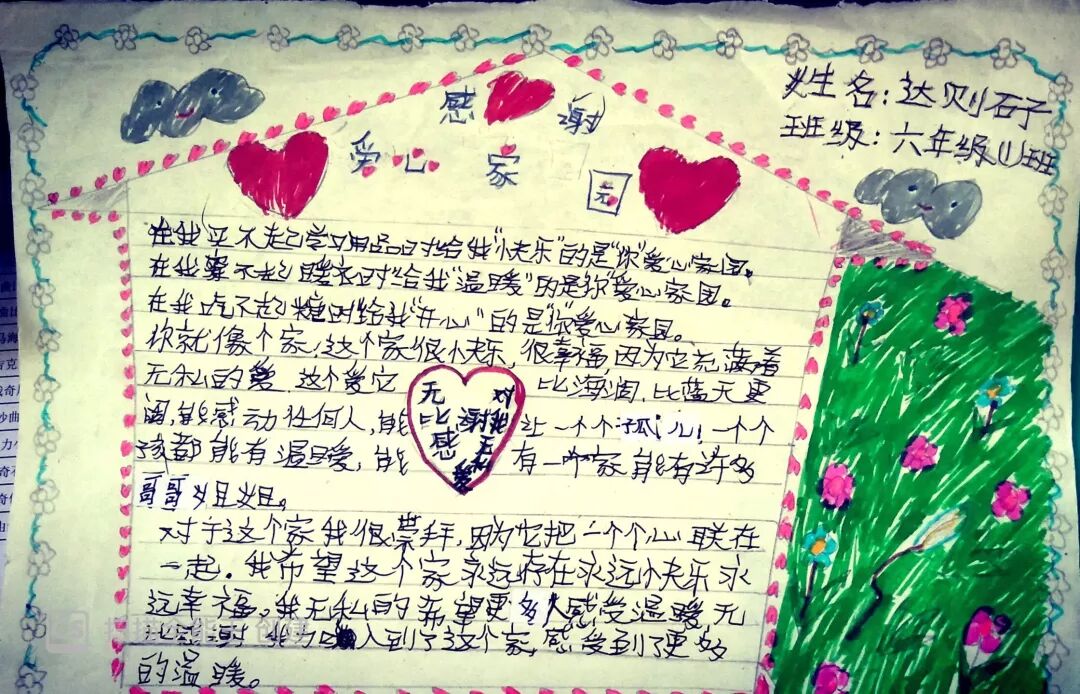 感谢
爱心家园
姓名:达则石子
班级:六年级(1)班
在我买不起学习用品时给我“快乐”的是“你”爱心家园。
在我买不起暖衣时给我“温暖”的是“你”爱心家园。
在我吃不起糖时给我“开心”的是“你”爱心家园。
你就像个家!这个家很快乐,很幸福,因为它充满着
无私的爱 这个爱它 比海阔,比蓝天更
阔,能感动任何人,能 让一个个孤儿!一个个
孩都能有温暖,能 有一个家能有许多
哥哥姐姐。
无比感 谢 对我 无私 爱
对于这个家我很崇拜,因为它把一个个心联在
一起。我希望这个家永远存在永远快乐永
远幸福。我无私的希望更多人感受温暖,无
我为 入到了这个家,感受到了更多
的温暖。